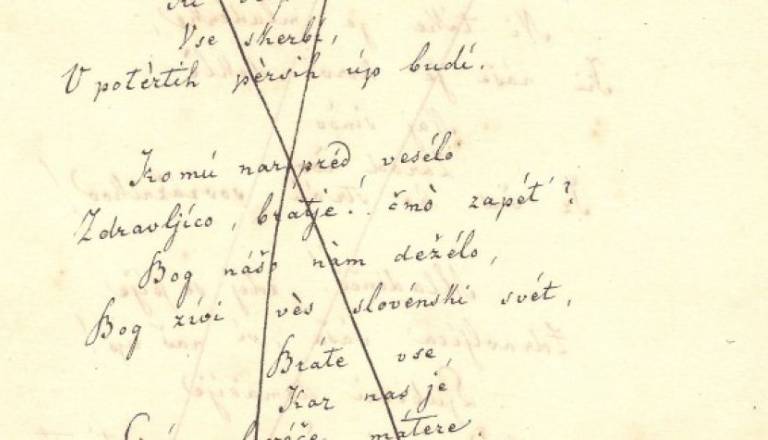 Vse skerbí,
V potértih pèrsih úp budí.
Komú narpréd vesélo
Zdravljíco, brátje! čmò zapét'?
Bog nášo nàm dežélo,
Bog živi vès slovénski svét,
Bráte vse,
Kar nas je
mátere.